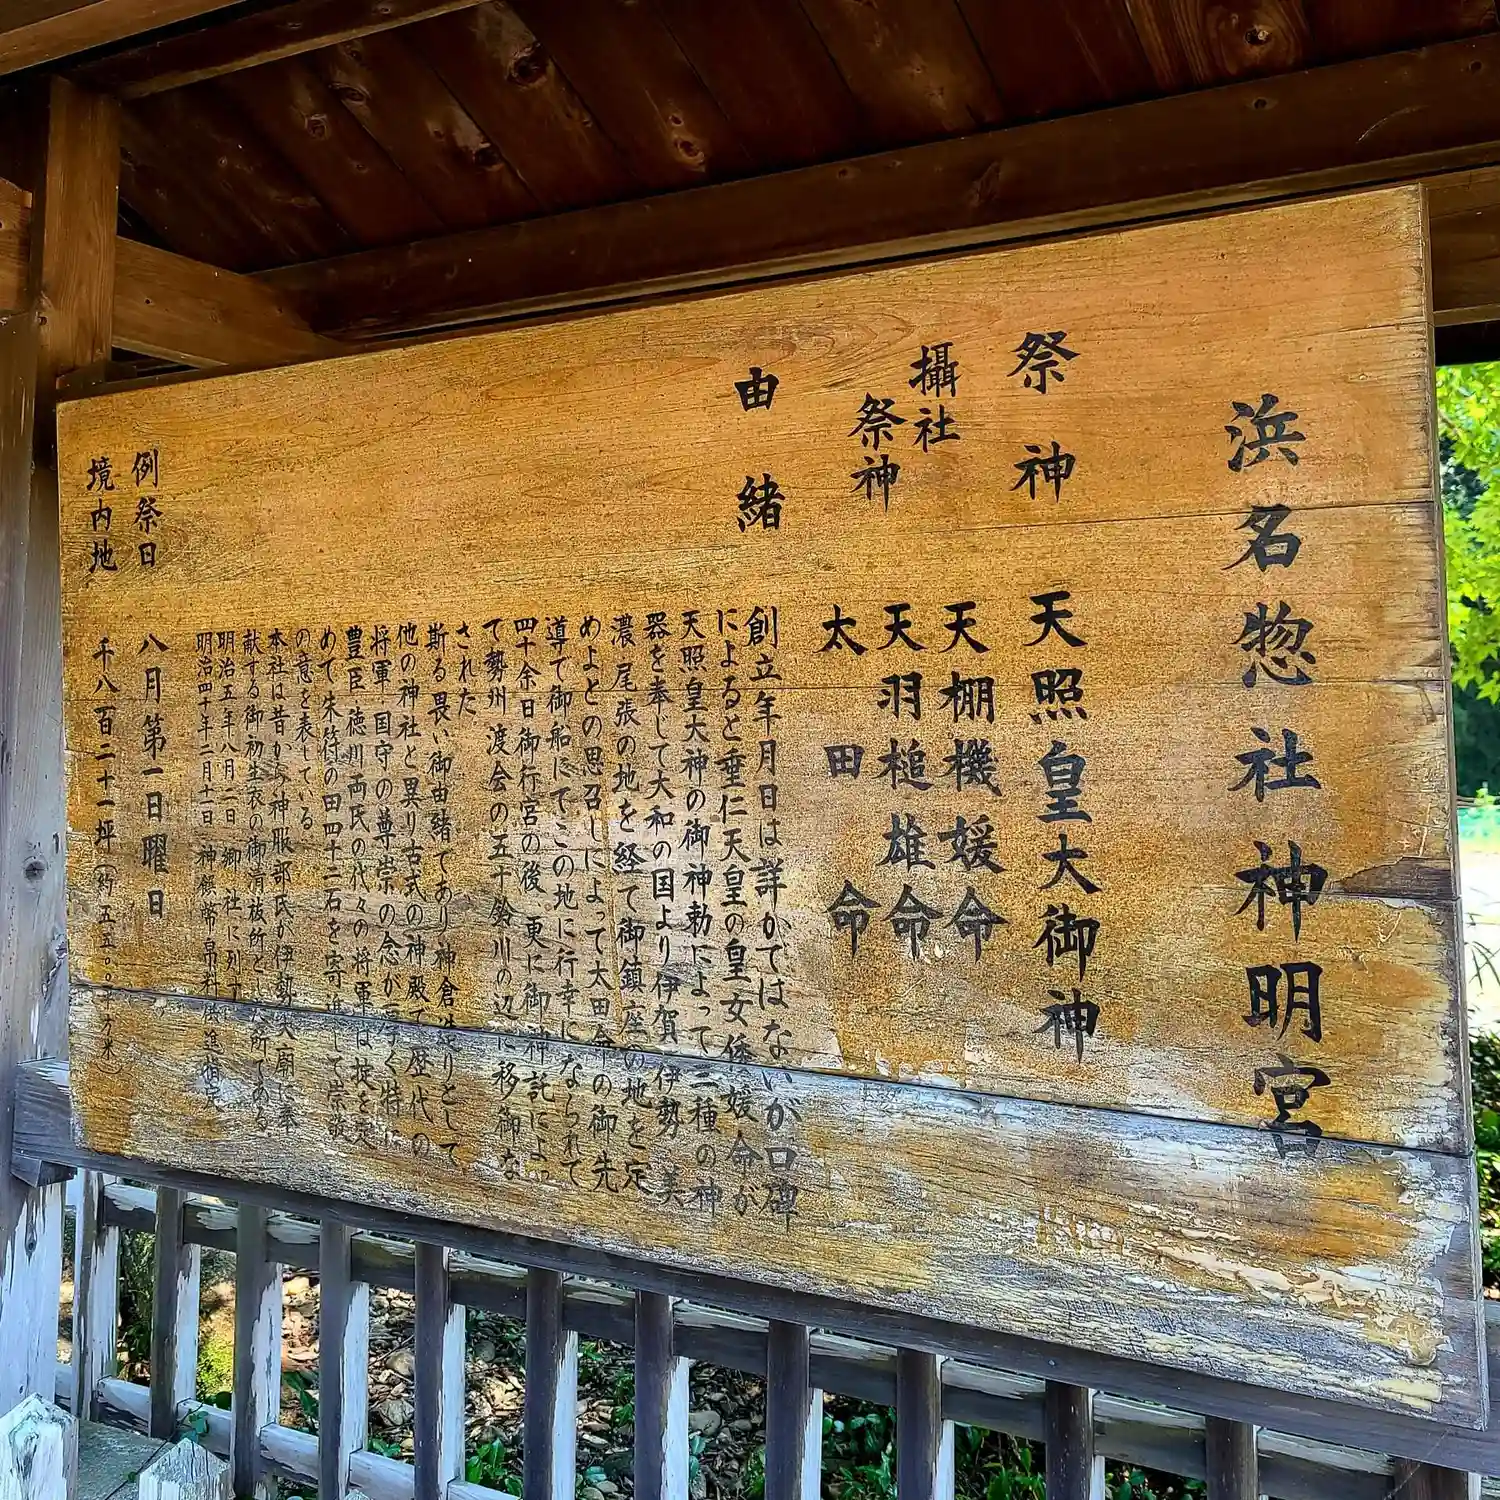 浜名惣社神明宮
祭神 天照皇大御神
攝社
祭神 天棚機媛命
天羽槌雄命
太田命
由緒 創立年月日は詳かではないが口碑
によると垂仁天皇の皇女倭媛命が
天照皇大神の御神勅によって二種の神
器を奉じて大和の国より伊賀 伊勢 美
濃 尾張の地を経て御鎮座の地を定
めよとの思召しによって太田命の御先
導で御船にてこの地に行幸になられて
四十余日御行宮の後、更に御神託によっ
て勢州 渡会の五十鈴川の辺に移御な
された
斯る畏い御由緒であり神倉造りとして
他の神社と異り古式の神殿で歴代の
将軍 国守の尊崇の念が厚く特に
豊臣 徳川両氏の代々の将軍は掟を定
めて朱符の田四十二石を寄進して崇敬
の意を表している
本社は昔から神服部氏が伊勢大廟に奉
献する御初生衣の御清祓所とした所である
明治五年八月二日 郷社に列す
明治四十年二月十一日 神饌幣帛料供進指定
例祭日 八月第一日曜日
境内地 千八百二十一坪(約五五〇〇平方米)